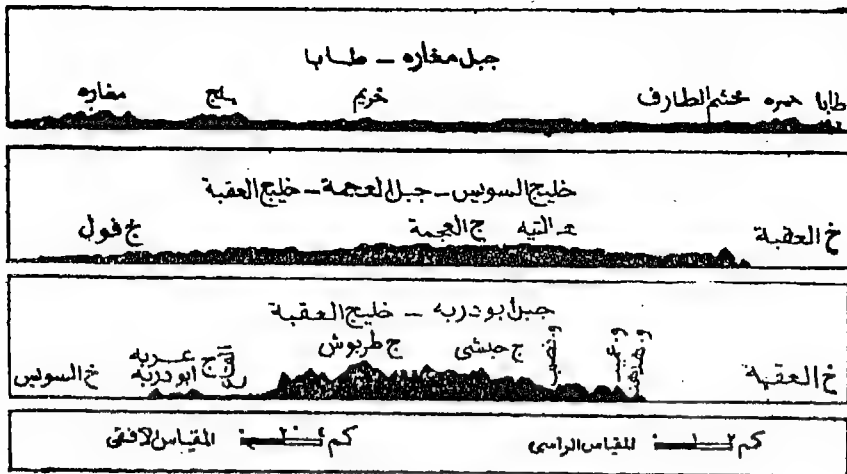 جبل مغاره – طابا
طابا حمره محشم الطارف خريم يلج مغاره
خليج السويس – جبل العجمة – خليج العقبة
خ العقبة هـ التيه ج العجمة خ فول
جبل أبو دربه – خليج العقبة
خ العقبة و. نصب ج حبشى ج طربوش ج عربه خ السويس
ابو دربه
كم ٢ ١ ٠ المقياس الراسى كم ٤ ٢ ٠ المقياس الافقى